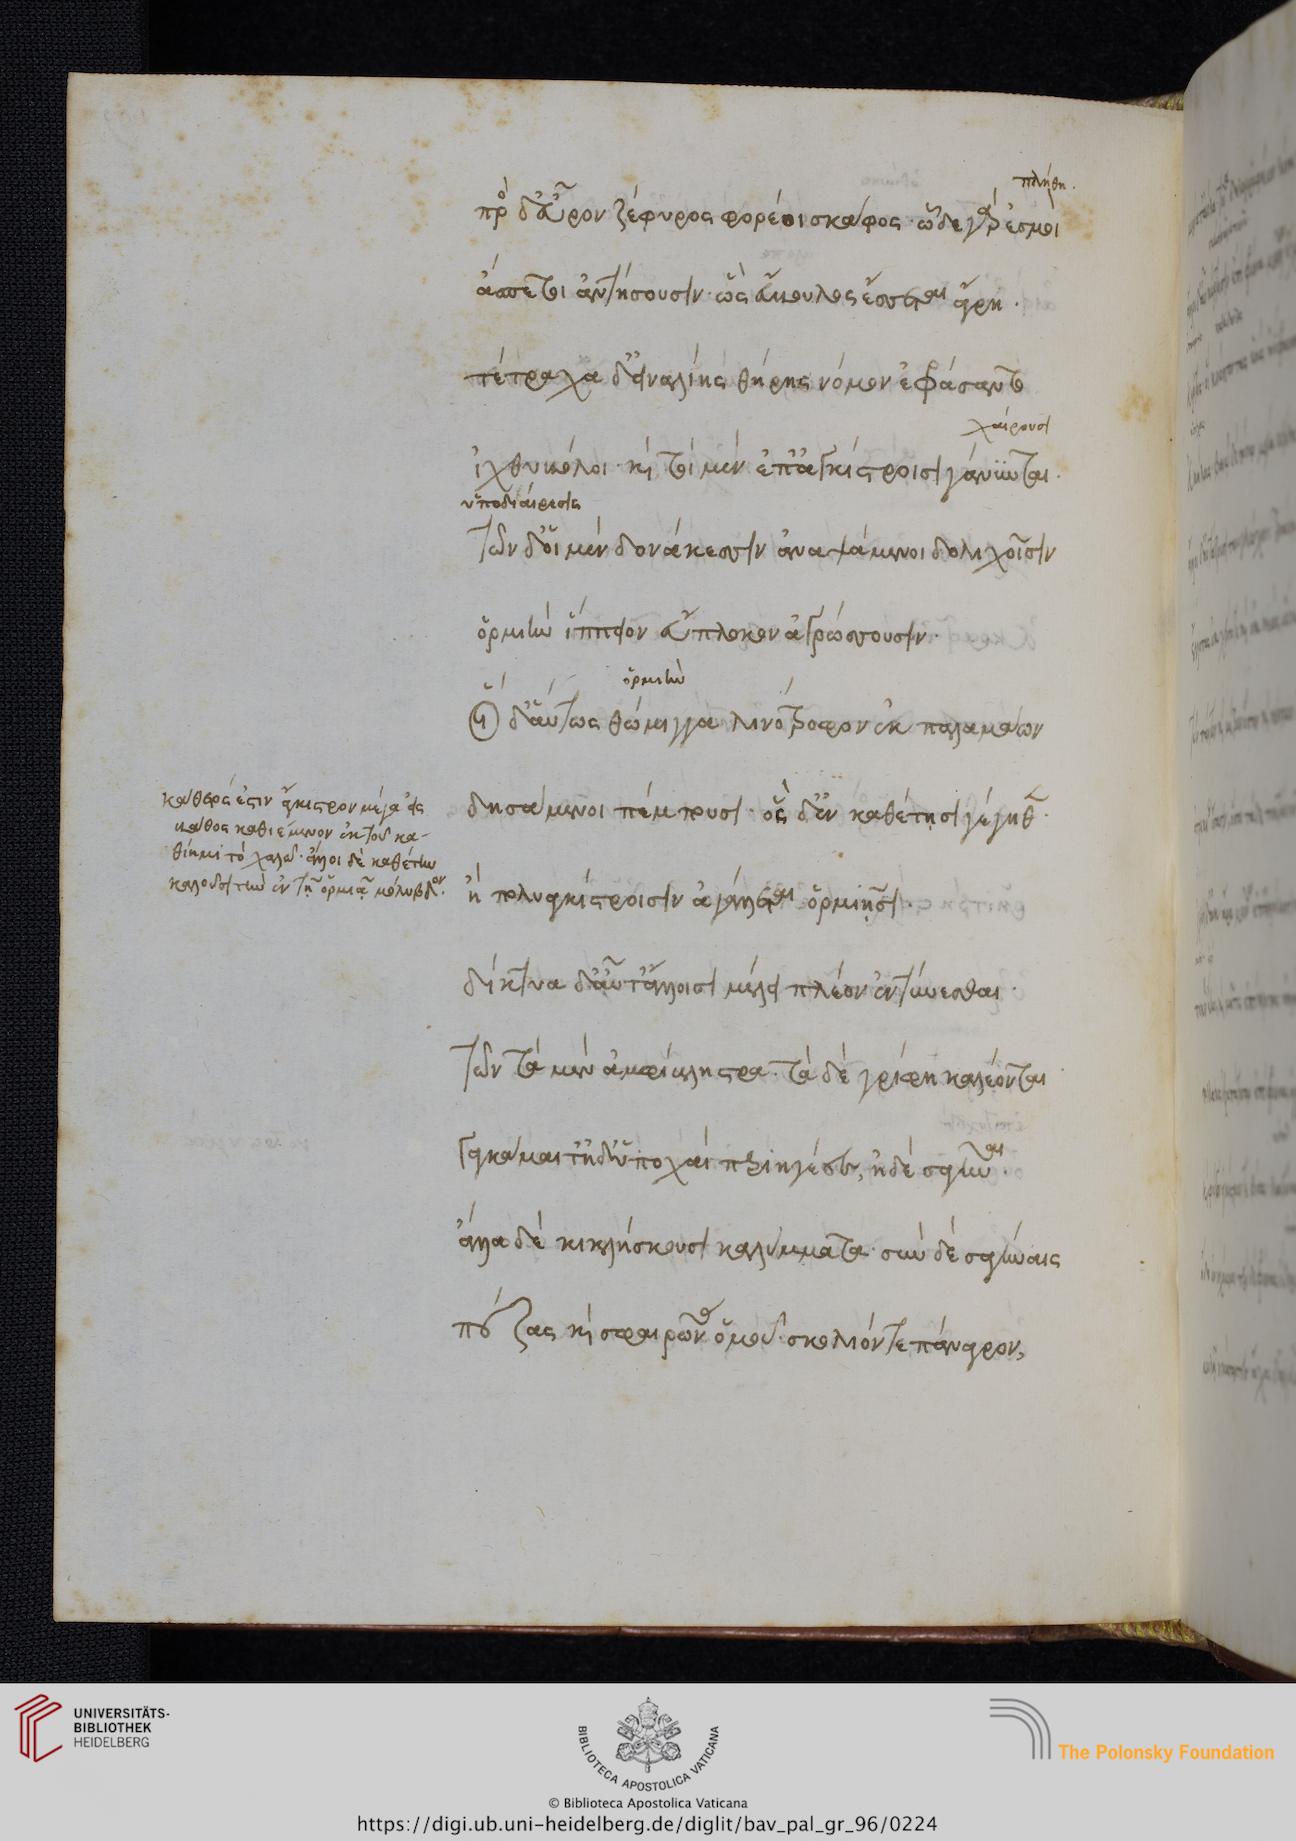 πλήθη.
πρὸς δ' αὖρον ζέφυρος φορέοι σκάφος· ὧδε γὰρ ἑσμοὶ
ἄσπετοι ἀντήσουσιν· ὡς εὔβουλος ἔσσεται ἄγρη.
τέτραχα δ' εἰναλίης θήρης νόμον ἐφράσαντο
χαίρουσι
ἰχθυβόλοι· καὶ τοὶ μὲν ἐπ' ἀγκίστροισι γάνυνται.
ὑποδιαίρεσις
τῶν δ' οἱ μὲν δονάκεσσιν ἀναψάμενοι δολιχοῖσιν
ὁρμιὴν ἵππειον εὔπλοκον ἀγρώσσουσιν.
ὁρμιὴν
οἱ δ' αὔτως θώμιγγα λινόστροφον ἐκ παλαμάων
δησάμενοι πέμπουσι· ὃς δ' ἐν καθέτῃσι γέγηθε.
ἢ πολυαγκίστροισιν ἀγάλλεται ὁρμιῇσι.
δίκτυα δ' αὖτ' ἄλλοισι μέλει πλέον ἐντύνεσθαι.
τῶν τὰ μὲν ἀμφίβληστρα· τὰ δὲ γρίφη καλέονται
γάγκαμαι τ' ἠδ' ὑποχαὶ περιηγέες, ἠδὲ σαγῆναι.
ἄλλα δὲ κικλήσκουσι καλύμματα· σὺν δὲ σαγήναις
πέζας καὶ σφαιρῶνας ὁμοῦ· σκολιόν τε πάναγρον,
κάθετός ἐστιν ἄγκιστρον μέγα εἰς
βάθος καθιέμενον ἐκ τοῦ κα-
θίημι τὸ χαλῶ· ἄλλοι δὲ καθέτην
καλοῦσι τὴν ἐν τῇ ὁρμιᾷ μόλυβδον.
UNIVERSITÄTS-
BIBLIOTHEK
HEIDELBERG
BIBLIOTECA APOSTOLICA VATICANA
The Polonsky Foundation
© Biblioteca Apostolica Vaticana
https://digi.ub.uni-heidelberg.de/diglit/bav_pal_gr_96/0224